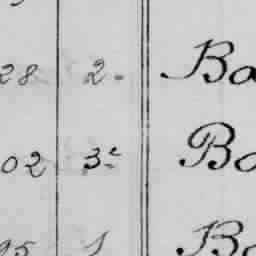 28 2. Ba
02 3ᵉ Bo
95 1 Ba